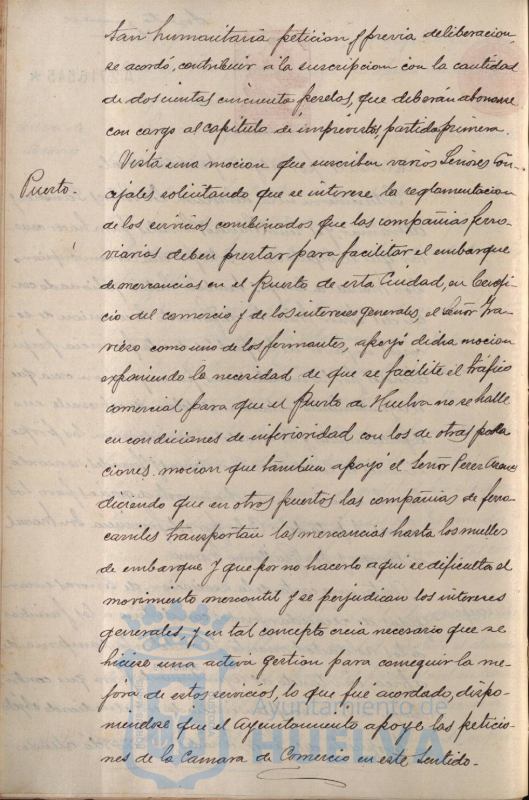 tan humanitaria peticion y previa deliberacion,
se acordó, contribuir a la suscripcion con la cantidad
de doscientas cincuenta pesetas, que deberán abonarse
con cargo al capitulo de imprevistos partida primera.
Puerto.
Vista una mocion que suscriben varios Señores Con-
cejales solicitando que se interese la reglamentacion
de los servicios combinados que las compañias ferro-
viarias deben prestar para facilitar el embarque
de mercancias en el Puerto de esta Ciudad, en benefi-
cio del comercio y de los intereses generales, el Señor Tra-
vieso como uno de los firmantes, apoyó dicha mocion
exponiendo la necesidad de que se facilite el tráfico
comercial para que el Puerto de Huelva no se halle
en condiciones de inferioridad con los de otras pobla
ciones. mocion que tambien apoyó el Señor Perez
diciendo que en otros puertos las compañias de ferro
carriles transportan las mercancias hasta los muelles
de embarque y que por no hacerlo aqui se dificulta el
movimiento mercantil y se perjudican los intereses
generales, y en tal concepto creia necesario que se
hiciese una activa gestion para conseguir la me-
jora de estos servicios, lo que fué acordado, dispo-
niendose que el Ayuntamiento apoye las peticio-
nes de la Camara de Comercio en este sentido.-
Ayuntamiento de
HUELVA